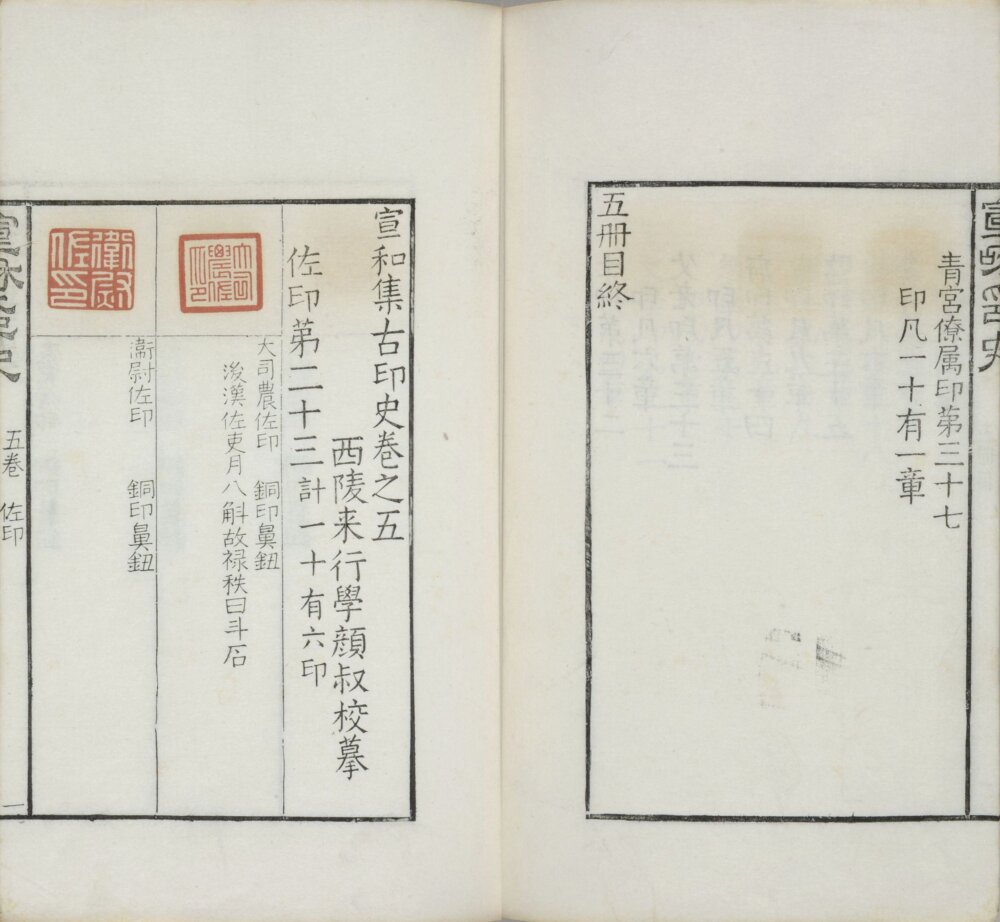 宣和印史
青宮僚属印第三十七
印凡一十有一章
五冊目終
宣和集古印史卷之五
西陵来行學顔叔校摹
佐印第二十三計一十有六印
大司農佐印
大司農佐印　銅印鼻鈕
後漢佐吏月八斛故禄秩曰斗石
衛尉佐印
衛尉佐印　銅印鼻鈕
宣和印史
五卷　佐印
一